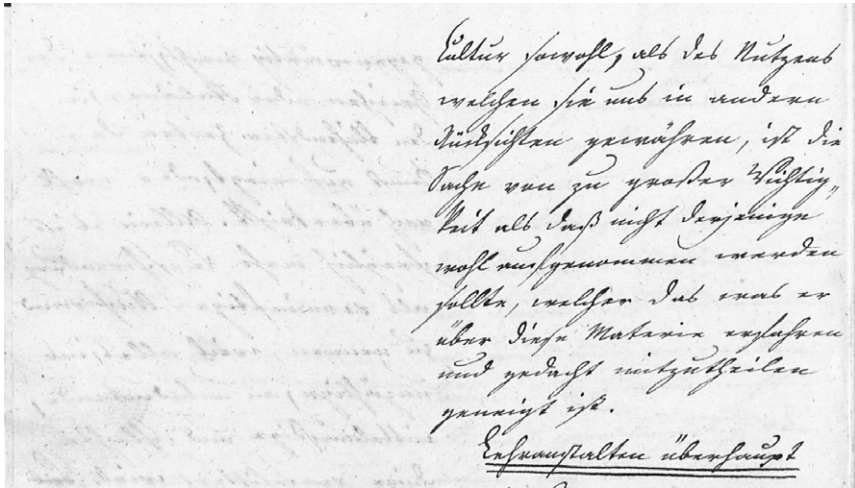 Cultur sowohl, als des Nutzens
welchen sie uns in andern
Rücksichten gewähren, ist die
Sache von zu großer Wichtig„
keit als daß nicht derjenige
wohl aufgenommen werden
sollte, welcher das was er
über diese Materie erfahren
und gedacht mitzutheilen
geneigt ist.
Lehranstalten überhaupt